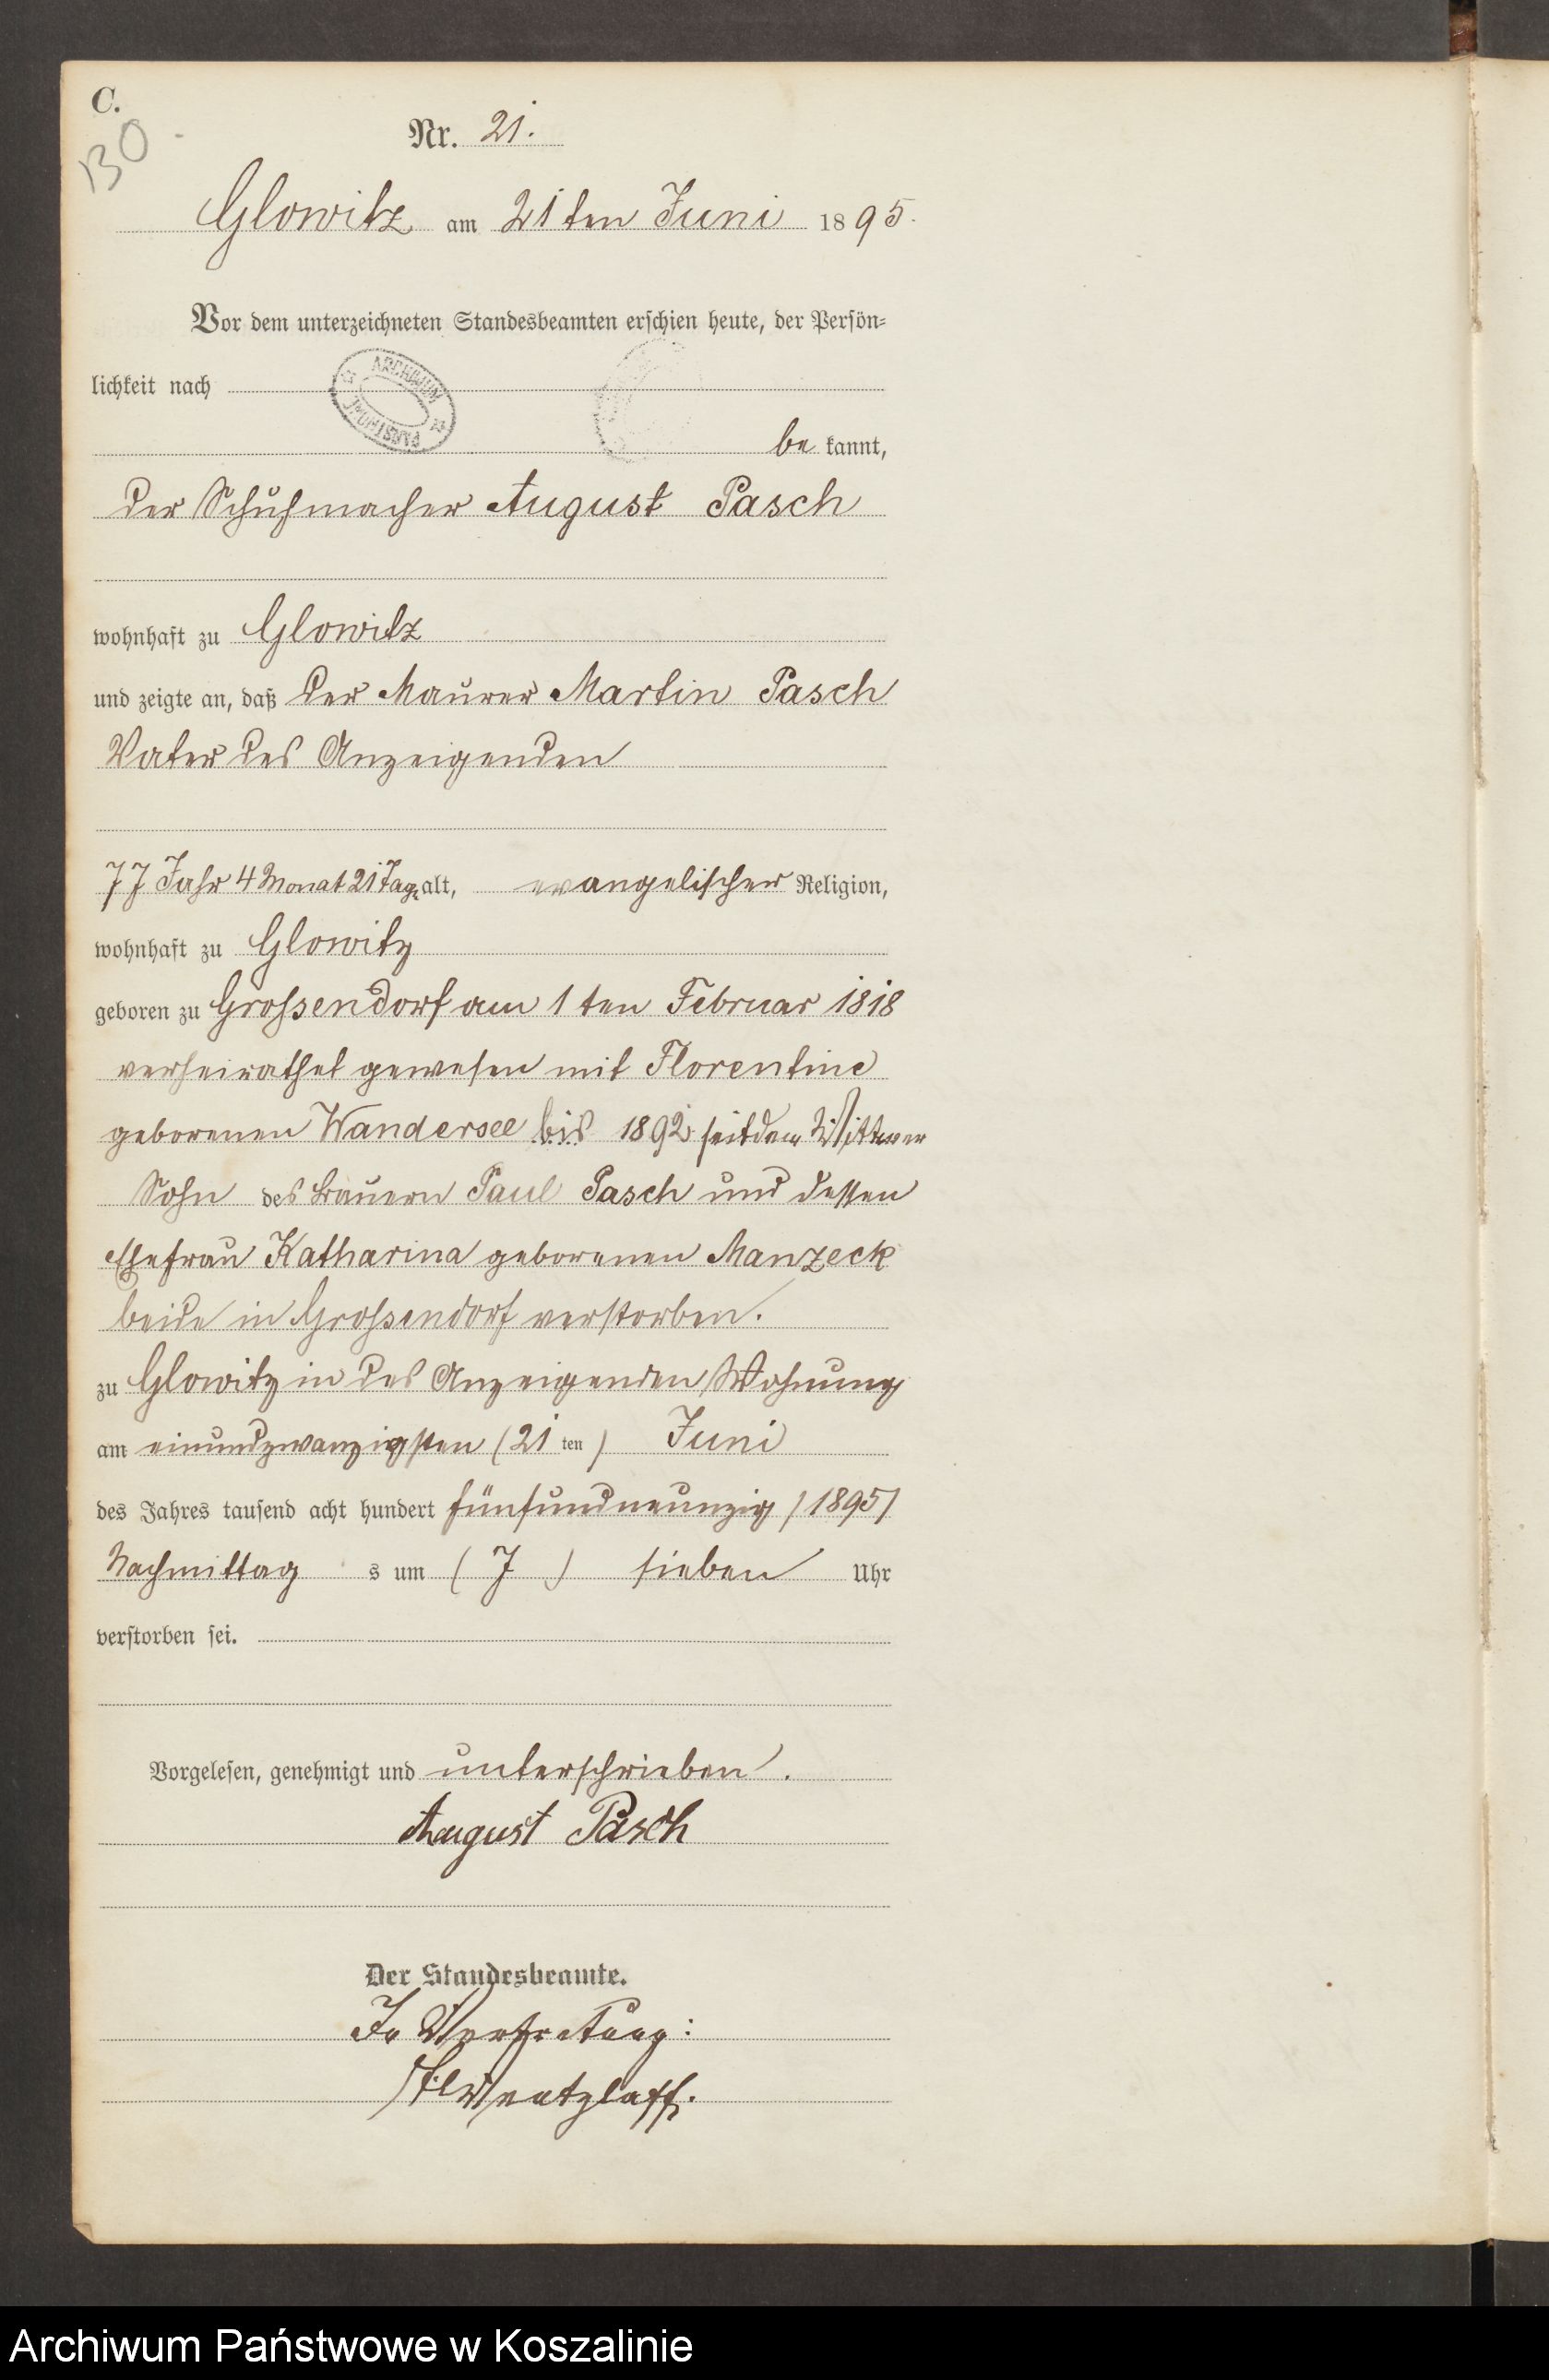 C.
130
Nr. 21.
Glowitz am 21ten Juni 1895.
Vor dem unterzeichneten Standesbeamten erschien heute, der Persön-
lichkeit nach
ARCHIWUM PAŃSTWOWE
be kannt,
der Schuhmacher August Pasch
wohnhaft zu Glowitz
und zeigte an, daß der Maurer Martin Pasch
Vater des Anzeigenden
77 Jahr 4 Monat 21 Tage alt, evangelischer Religion,
wohnhaft zu Glowitz
geboren zu Großendorf am 1ten Februar 1818
verheirathet gewesen mit Florentine
geborenen Wandersee bis 1892 seitdem Wittwer
Sohn des Bauern Paul Pasch und dessen
Ehefrau Katharina geborenen Manzeck
beide in Großendorf verstorben.
zu Glowitz in des Anzeigenden Wohnung
am einundzwanzigsten (21 ten) Juni
des Jahres tausend acht hundert fünfundneunzig (1895)
Nachmittag s um (7) sieben Uhr
verstorben sei.
Vorgelesen, genehmigt und unterschrieben.
August Pasch
Der Standesbeamte.
In Vertretung:
Wentzlaff.
Archiwum Państwowe w Koszalinie